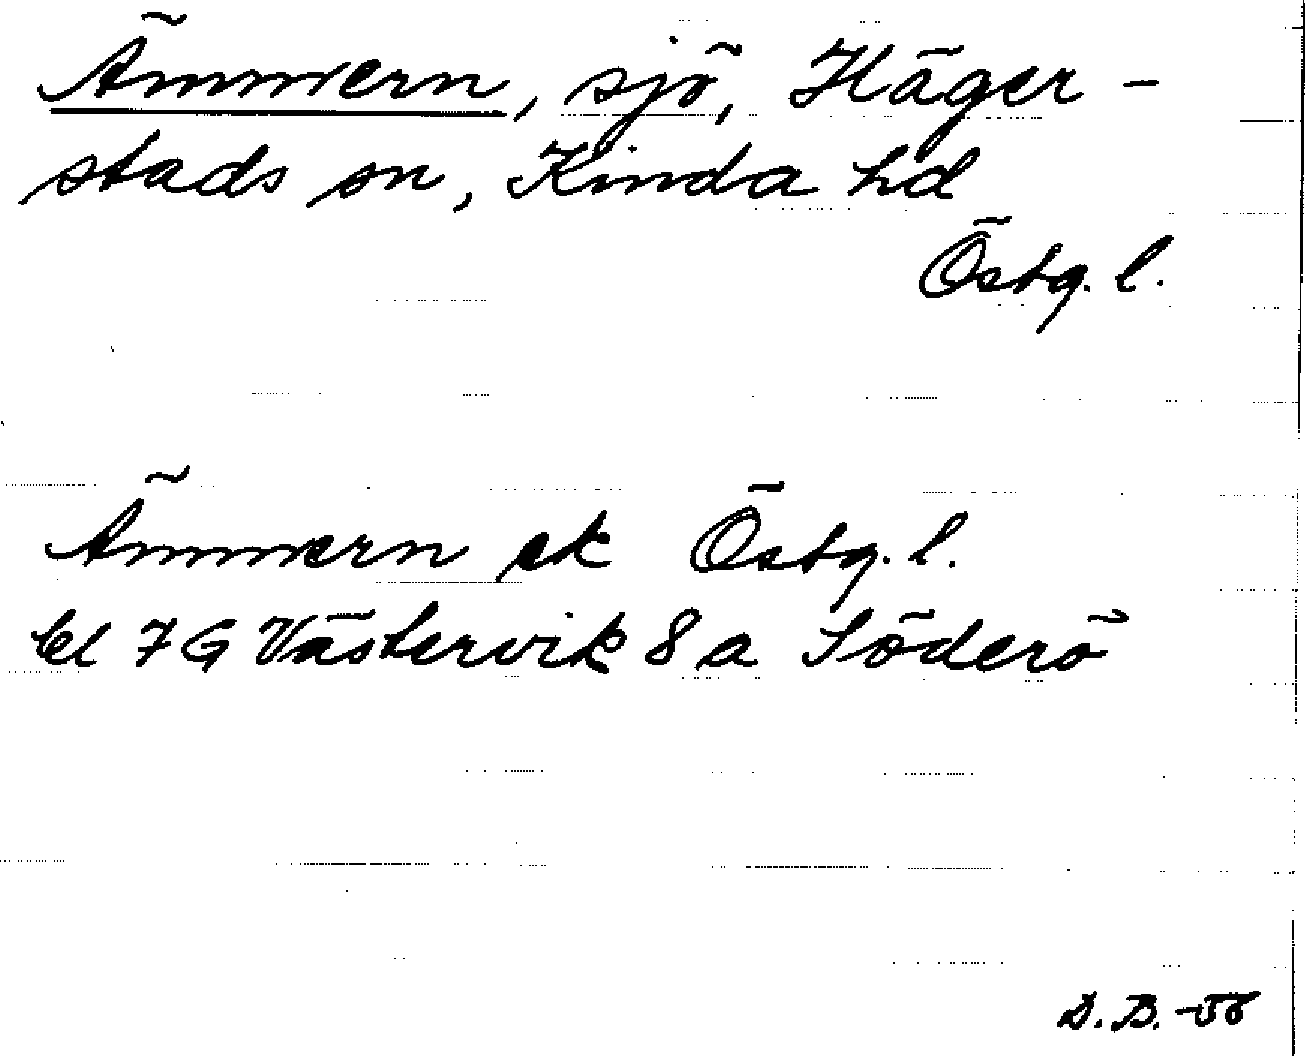 Ämmern, sjö, Häger-
stads sn, Kinda hd
Östg. l.
Ämmern ek Östg. l.
bl 7 G Västervik 8 a Söderö
S. B. -58